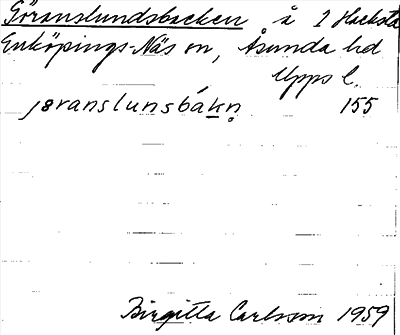 Göranslundsbacken å 2 Hacksta
Enköpings-Näs sn, Åsunda hd
Upps l.
jøranslunsbákn̥ 155
Birgitta Carlsson 1959